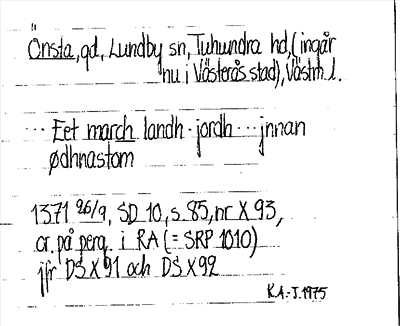 Önsta, gd, Lundby sn, Tuhundra hd, (ingår
nu i Västerås stad), Västm l.
... Eet march landh · jordh ... jnnan
ødhnastom
1371 26/9, SD 10, s. 85, nr X 93,
or. på perg. i RA (= SRP 1010)
jfr DS X 91 och DS X 92
K.A.-J. 1975